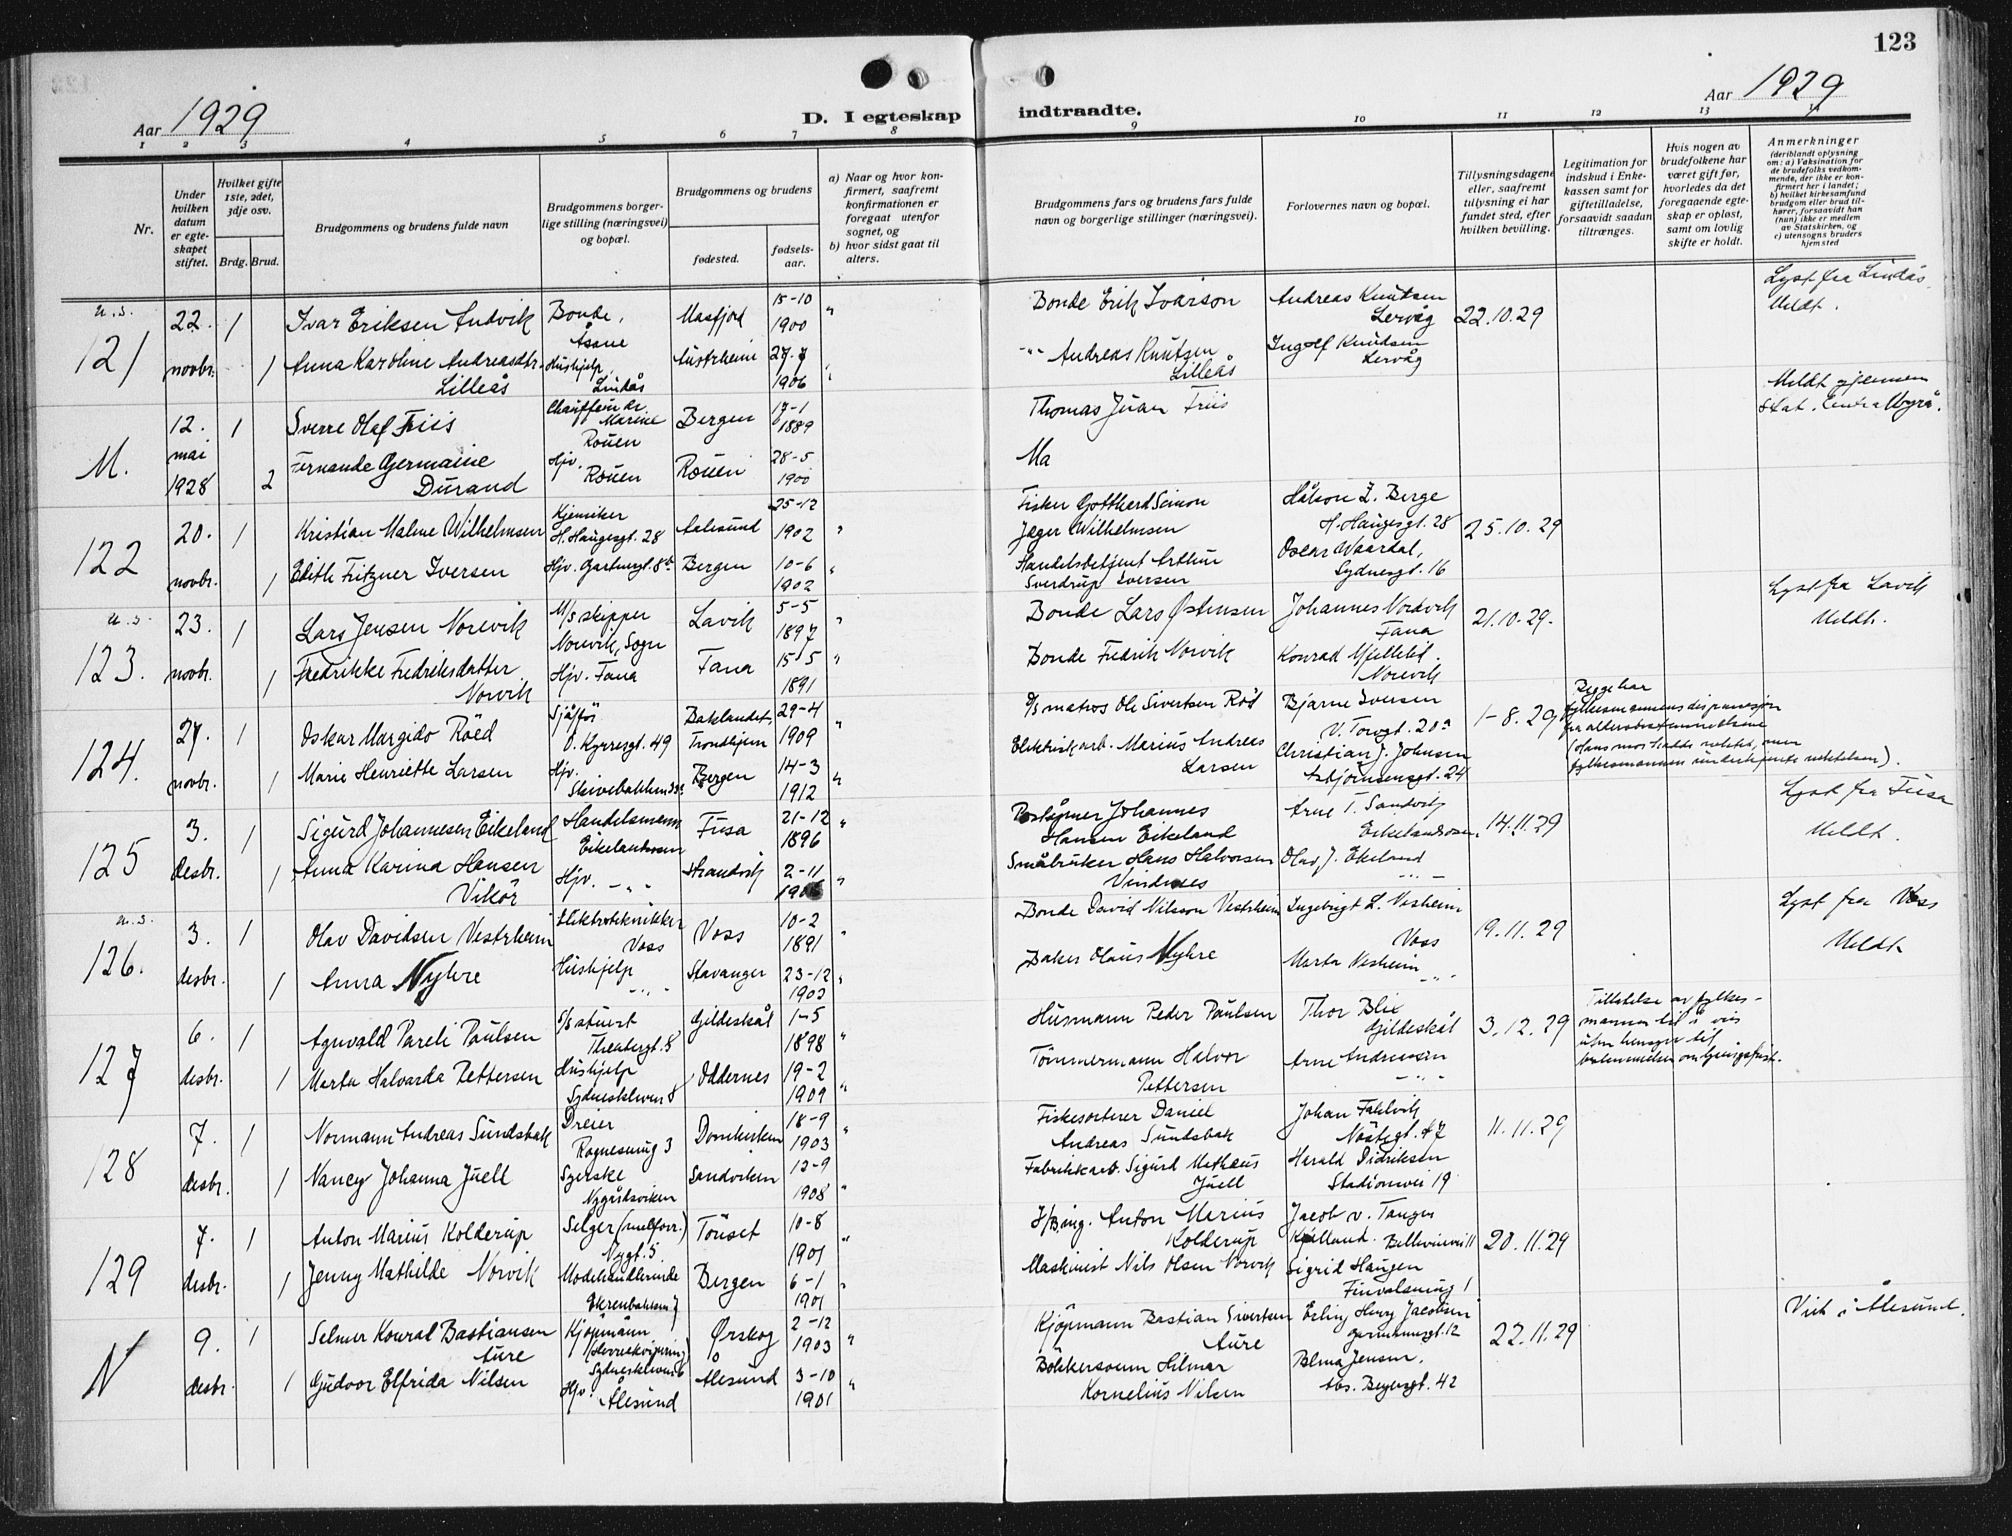 123
Aar 1929
D. I egteskap indtraadte.
Aar 1929
1 2 3 4 5 6 7 8 9 10 11 12 13 14
Nr.
Under hvilken datum er egteskapet stiftet.
Hvilket gifte 1ste, 2det, 3dje osv.
Brdg. Brud.
Brudgommens og brudens fulde navn
Brudgommens borgerlige stilling (næringsvei) og bopæl.
Brudgommens og brudens
fødested.
fødselsaar.
a) Naar og hvor konfirmert, saafremt konfirmationen er foregaat utenfor sognet, og
b) hvor sidst gaat til alters.
Brudgommens fars og brudens fars fulde navn og borgerlige stillinger (næringsvei).
Forlovernes navn og bopæl.
Tillysningsdagene eller, saafremt tillysning ei har fundet sted, efter hvilken bevilling.
Legitimation for indskud i Enkekassen samt for giftetilladelse, forsaavidt saadan tiltrænges.
Hvis nogen av brudefolkene har været gift før, hvorledes da det foregaaende egteskap er opløst, samt om lovlig skifte er holdt.
Anmerkninger
(deriblandt oplysning om: a) Vaksination for de brudefolks vedkommende, der ikke er konfirmert her i landet; b) hvilket kirkesamfund brudgom eller brud tilhører, forsaavidt han (hun) ikke er medlem av Statskirken, og c) utensogns bruders hjemsted
u.s.
121
22. novbr.
1 Ivar Eriksen Andvik
Bonde, Åsane
Masfjord
15-10 1900
"
Bonde Erik Ivarson
Andreas Knutsen Lervåg
22.10.29
Lyst fra Lindås. Meldt.
1 Anna Karoline Andreasdtr. Lilleås
Hushjelp, Lindås
Austrheim
27-7 1906
"
-"- Andreas Knutsen Lilleås
Ingolf Knudsen Lervåg
M.
12. mai 1928
1 Sverre Olaf Friis
Chauffeur de Marine Rouen
Bergen
17-1 1889
Thomas Juan Friis
Meldt gjennem Stat. Centralbyrå.
2 Fernande Germaine Durand
Hjv. Rouen
Rouen
28-5 1900
Ma
122
20. novbr.
1 Kristian Malme Wilhelmsen
Kjemiker H. Haugesgt. 28
Aalesund
25-12 1902
"
Fisker Gotthard Simon Jæger Wilhelmsen
Håkon Z. Berge H. Haugesgt. 28
25.10.29
1 Edith Fritzner Iversen
Hjv. Gartnergt. 8b
Bergen
10-6 1902
"
Handelsbetjent Arthur Sverdrup Iversen
Oscar Waardal, Sydnesgt. 16
u.s.
123.
23. novbr.
1 Lars Jensen Norevik
M/s skipper Norevik, Sogn
Lavik
5-5 1897
"
Bonde Lars Østensen
Johannes Nordvik Fana
21.10.29.
Lyst fra Lavik Meldt.
1 Fredrikke Fredriksdatter Norvik
Hjv. Fana
Fana
15-5 1891
"
Bonde Fredrik Norvik
Konrad Norevik
124.
27. novbr.
1 Oskar Margido Röed
Sjåfør O. Kyrresgt. 49
Baklandet, Trondhjem
29-4 1909
"
D/s matros Ole Sivertsen Röd
Bjarne Iversen V. Torvgt. 20a
1-8.29
Begge har fylkesmannens dispensasjon
1 Marie Henriette Larsen
Hjv. Skivebakken
Bergen
14-3 1912
"
Elektrisk arb. Marius Andreas Larsen
Christian J. Johnsen Asbjörnsensgt. 24
125
3. desbr.
1 Sigurd Johannesen Eikeland
Handelsmann Eikelandsosen
Fusa
21-12 1896
"
Poståpner Johannes Hansen Eikeland
Arne T. Sandvik Eikelandsosen
14.11.29
Lyst fra Fusa Meldt.
1 Anna Karina Hansen Vikör
Hjv. -"-
Strandvik
2-11
"
Småbruker Hans Halvorsen Vindenes
Olav J. Ekeland -"-
u.s.
126.
3. desbr.
1 Olav Davidsen Vestrheim
Elektrotekniker Voss
Voss
10-2 1891
"
Bonde David Nilsson Vestrheim
Ingebrigt L. Vesheim Voss
19.11.29
Lyst fra Voss Meldt
1 Anna Nyhre
Hushjelp -"-
Stavanger
23-12 1903
"
Baker Olaus Nyhre
Marta Vesheim -"-
127
6. desbr.
1 Agnvald Pareli Paulsen
S/s stuert Theatergt. 8
Gildeskål
1-5 1898
"
Husmann Peder Paulsen
Thor Blix Gildeskål
3.12.29
Tillatelse av fylkesmannen
1 Marta Halvarda Pettersen
Hushjelp Sydneskleven 8
Oddernes
19-2 1909
"
Tömmermann Halvor Pettersen
Arne Andreassen -"-
128
7. desbr.
1 Normann Andreas Sundsbak
Dreier Rognesmug 3
Domkirken
18-9 1903
"
Fiskesorterer Daniel Andreas Sundsbak
Johan Fahlvik Nöstegt. 47
11.11.29
1 Nancy Johanna Juell
Syerske Nygårdsviken
Sandviken
12-9 1908
"
Fabrikkarb. Sigurd Matheus Juell
Harald Didriksen Stadionvei 19
129
7. desbr.
1 Anton Marius Kolderup
Selger (melforr.) Nygt. 5
Tönset
10-8 1901
"
Anton Marius Kolderup
Jacob v. Tangen Kjelland. Bellevuevei 11
20.11.29
1 Jenny Mathilde Norvik
Modehandlerinde Ekrenbakken 7
Bergen
6-1 1901
"
Maskinist Nils Olsen Norvik
Sigrid Haugen Finvolsmug 1
N
9. desbr.
1 Selmer Konrad Bastiansen Aure
Kjöpmann (Herreekvipering) Sydneskleven 6
Ørskog
2-12 1903
"
Kjöpmann Bastian Sivertsen Aure
Erling Henry Jacobsen 12
22.11.29
Viet i Ålesund.
1 Gudvor Elfrida Nilsen
Hjv. Ålesund
Ålesund
3-10 1901
"
Bökkersvenn Hilmar Kornelius Nilsen
Jensen. Abs. Beyersgt. 42